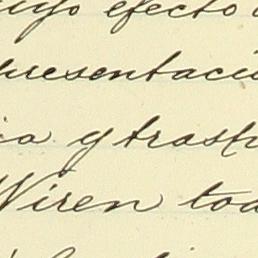 cuyo efecto
presentació
ia y trasf
Wiren toa